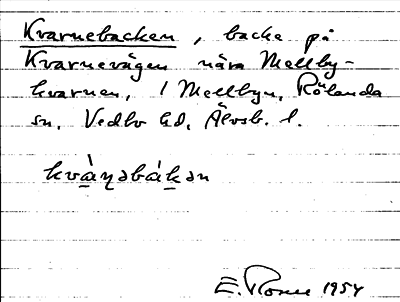 Kvarnebacken, backe på
Kvarnevägen nära Mellby-
kvarnen, i Mellbyn, Rölanda
sn. Vedbo hd, Älvsb. l.
kvàṇəbákən
E. 1954